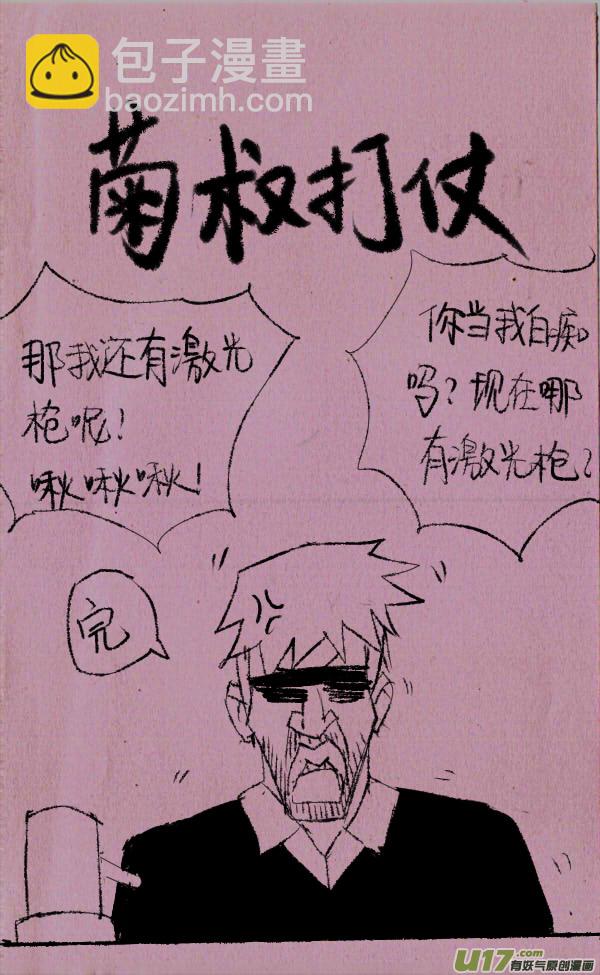 包子漫畫
baozimh.com
菊叔打仗
那我还有激光
枪呢！
啾啾啾！
你当我白痴
吗？现在哪
有激光枪？
完
U17.com
有妖气原创漫画